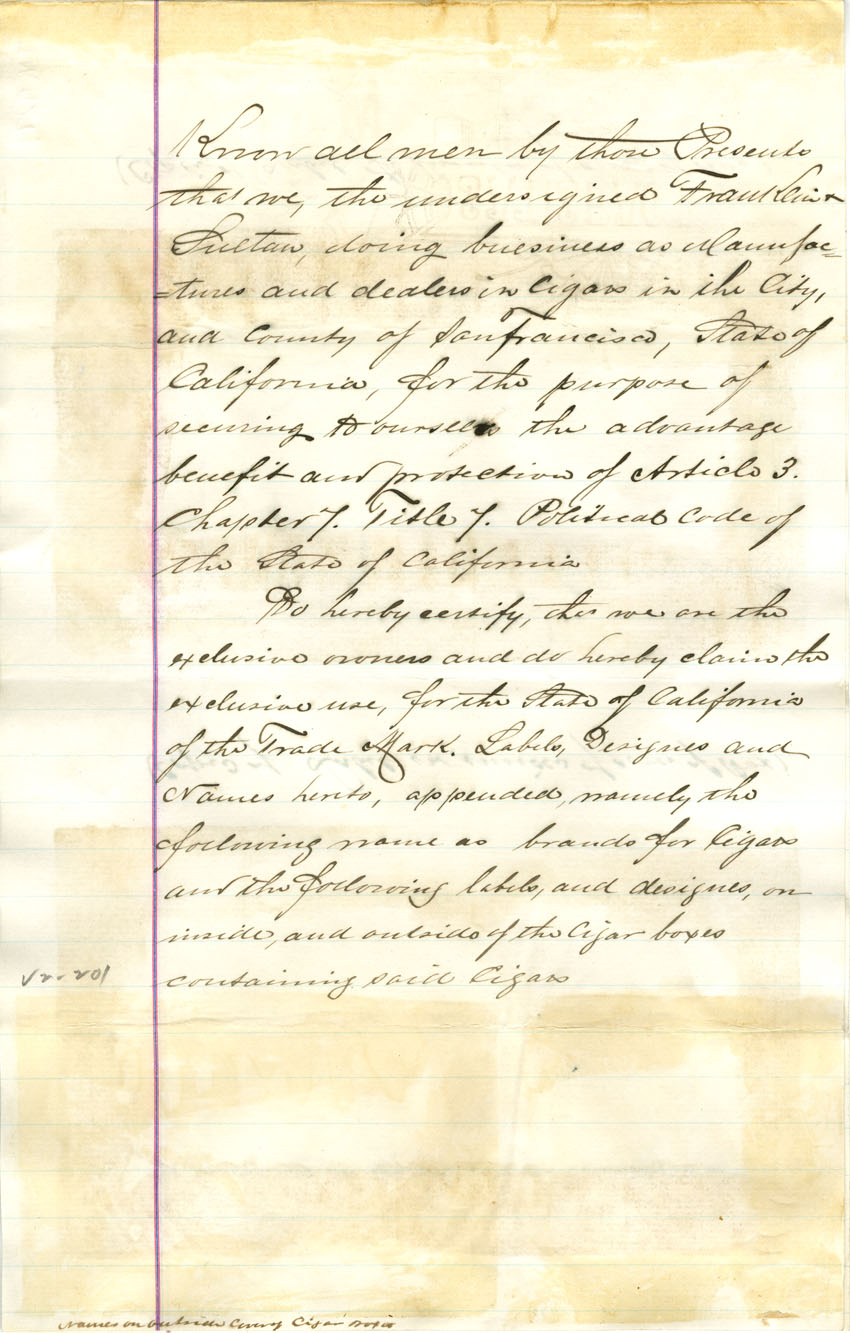 Know all men by those Presents
that we, the undersigned Franklin &
Sultan, doing buesiness as Manufac=
=tures and dealers in Cigars in the City,
and County of San Francisco, State of
California, for the purpose of
securing to ourselv the advantage
benefit and protection of Article 3.
Chapter 7. Title 7. Political Code of
the State of California
Do hereby certify, that we are the
exclusive owners and do hereby claim the
exclusive use, for the State of California
of the Trade Mark. Labels, Designes and
Names hereto, appended, namely the
following name as brands for Cigars
and the following labels, and designes, on
inside, and outside of the Cigar boxes
containing said Cigars
V2-201
Names on outside Cigar